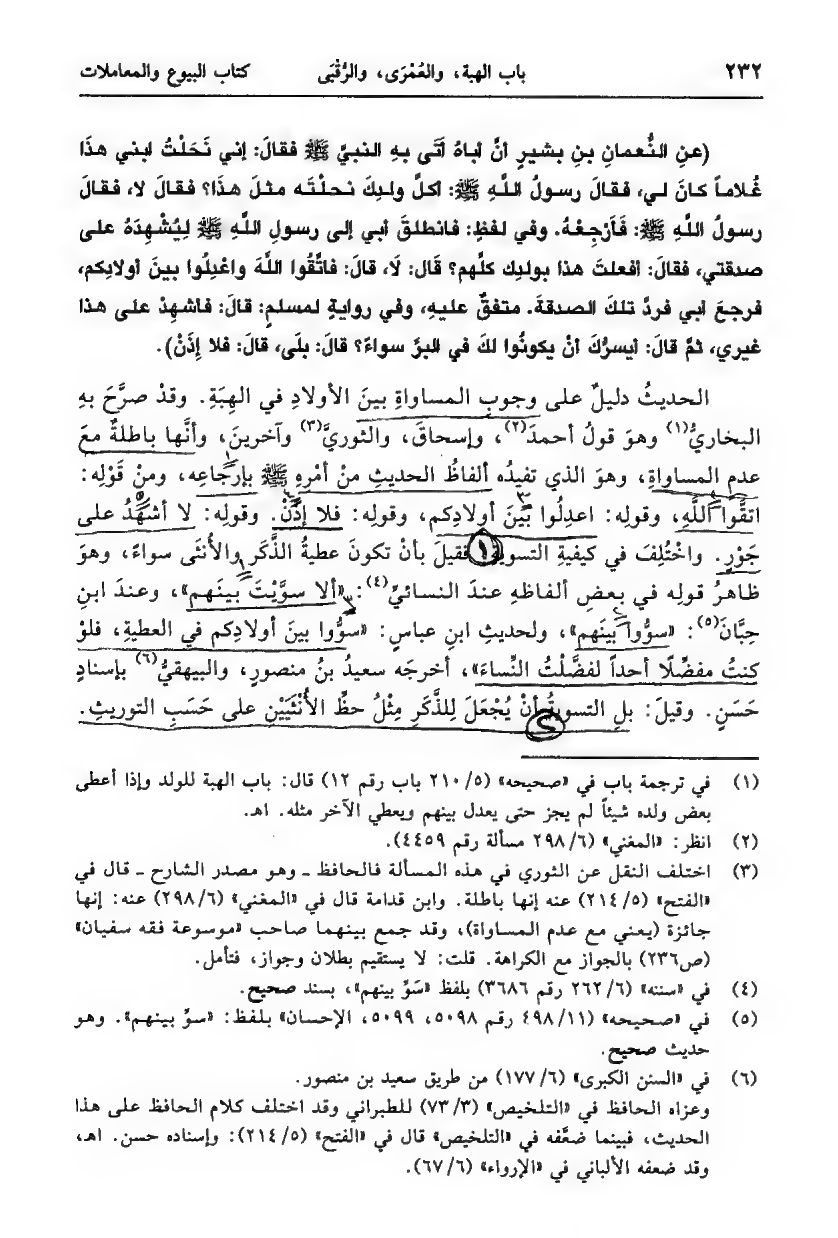 ٢٣٢ باب الهبة، والعُمْرَى، والرُّقْبَى كتاب البيوع والمعاملات
(عنِ النُّعمانِ بنِ بشيرٍ أنَّ أباهُ أتَى بهِ النبيَّ ﷺ فقالَ: إني نَحَلْتُ ابني هذَا
غُلاماً كانَ لي، فقالَ رسولُ اللَّهِ ﷺ: أكلَّ ولدِكَ نحلْتَه مثلَ هذَا؟ فقالَ لا، فقالَ
رسولُ اللَّهِ ﷺ: فَأَرْجِعْهُ. وفي لفظٍ: فانطلقَ أبي إلى رسولِ اللَّهِ ﷺ لِيُشْهِدَهُ على
صدقتي، فقالَ: أفعلتَ هذا بولدِك كلِّهم؟ قَال: لَا، قالَ: فاتَّقُوا اللَّهَ واعْدِلُوا بينَ أولادِكم،
فرجعَ أبي فردَّ تلكَ الصدقةَ. متفقٌ عليهِ، وفي روايةٍ لمسلمٍ: قالَ: فأشهِدْ على هذا
غيري، ثمَّ قالَ: أيسرُّكَ أنْ يكونُوا لكَ في البرِّ سواءً؟ قالَ: بلَى، قالَ: فلا إذَنْ).
الحديثُ دليلٌ على وجوبِ المساواةِ بينَ الأولادِ في الهِبَةِ. وقدْ صرَّحَ بهِ
البخاريُّ(١) وهوَ قولُ أحمدَ(٢)، وإسحاقَ، والثوريِّ(٣) وآخرينَ، وأنَّها باطلةٌ معَ
عدمِ المساواةِ، وهوَ الذي تفيدُه ألفاظُ الحديثِ منْ أمْرِهِ ﷺ بإرجاعِه، ومنْ قَوْلِه:
اتقُوا اللَّهِ، وقولِه: اعدِلُوا بَيْنَ أولادِكم، وقولِه: فلا إذَنْ. وقولِه: لا أشهَدُ على
جَوْرٍ. واخْتُلِفَ في كيفيةِ التسويةِ فقيلَ بأنْ تكونَ عطيةُ الذَّكَرِ والأنْثَى سواءً، وهوَ
ظاهرُ قولِه في بعضِ ألفاظهِ عندَ النسائيِّ(٤): «ألا سوَّيْتَ بينَهم»، وعندَ ابنِ
حِبَّانَ(٥): «سوُّوا بينَهم»، ولحديثِ ابنِ عباسٍ: «سوُّوا بينَ أولادِكم في العطيةِ، فلوْ
كنتُ مفضِّلًا أحداً لفضَّلْتُ النِّساءَ»، أخرجَه سعيدُ بنُ منصورٍ، والبيهقيُّ(٦) بإسنادٍ
حَسَنٍ. وقيلَ: بلِ التسويةُ أنْ يُجْعَلَ لِلذَّكَرِ مِثْلُ حظِّ الأُنْثَيَيْنِ على حَسَبِ التوريثِ.
(١) في ترجمة باب في «صحيحه» (٢١٠/٥ باب رقم ١٢) قال: باب الهبة للولد وإذا أعطى
بعض ولده شيئاً لم يجز حتى يعدل بينهم ويعطي الآخر مثله. اهـ.
(٢) انظر: «المغني» (٢٩٨/٦ مسألة رقم ٤٤٥٩).
(٣) اختلف النقل عن الثوري في هذه المسألة فالحافظ ـ وهو مصدر الشارح ـ قال في
«الفتح» (٢١٤/٥) عنه إنها باطلة. وابن قدامة قال في «المغني» (٢٩٨/٦) عنه: إنها
جائزة (يعني مع عدم المساواة)، وقد جمع بينهما صاحب «موسوعة فقه سفيان»
(ص٢٣٦) بالجواز مع الكراهة. قلت: لا يستقيم بطلان وجواز، فتأمل.
(٤) في «سننه» (٢٦٢/٦ رقم ٣٦٨٦) بلفظ «سَوِّ بينهم»، بسند صحيح.
(٥) في «صحيحه» (٤٩٨/١١ رقم ٥٠٩٨، ٥٠٩٩، الإحسان» بلفظ: «سوِّ بينهم». وهو
حديث صحيح.
(٦) في «السنن الكبرى» (١٧٧/٦) من طريق سعيد بن منصور.
وعزاه الحافظ في «التلخيص» (٧٣/٣) للطبراني وقد اختلف كلام الحافظ على هذا
الحديث، فبينما ضعَّفه في «التلخيص» قال في «الفتح» (٢١٤/٥): وإسناده حسن. اهـ،
وقد ضعفه الألباني في «الإرواء» (٦٧/٦).